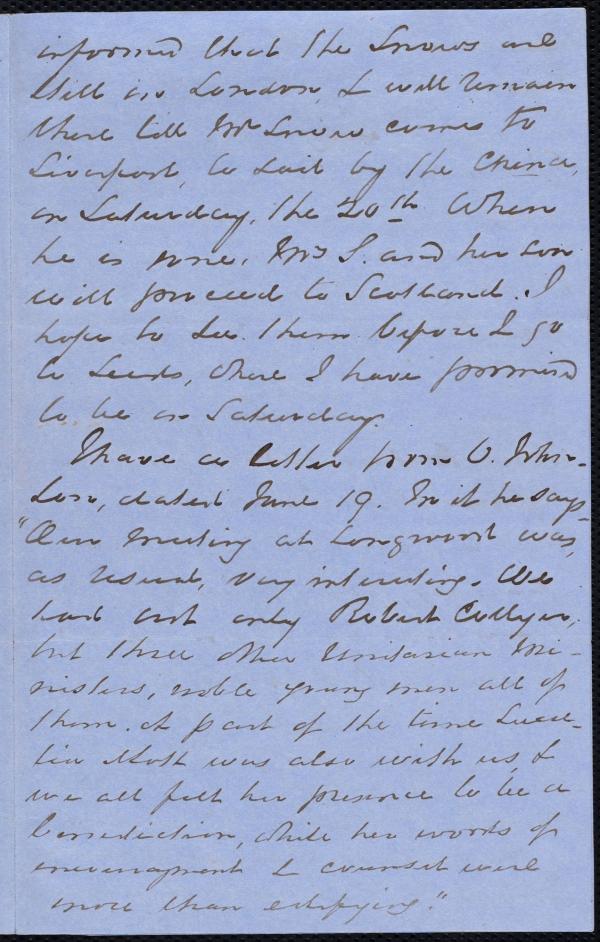 informed that the Snows are
still in London, & will remain
there till Mr Snow comes to
Liverpool, to sail by the China,
on Saturday, the 20th. When
he is gone, Mrs S. and her son
will proceed to Scotland. I
hope to see them before I go
to Leeds, where I have promised
to be on Saturday.
I have a letter from O. John-
son, dated June 19. In it he says
"Our meeting at Longwood was,
as usual, very interesting. We
had not only Robert Collyer,
but three other Unitarian Mi-
nisters, noble young men all of
them. A part of the time Lucre-
tia Mott was also with us, &
we all felt her presence to be a
benediction, while her words of
encouragement & counsel were
more than edifying."